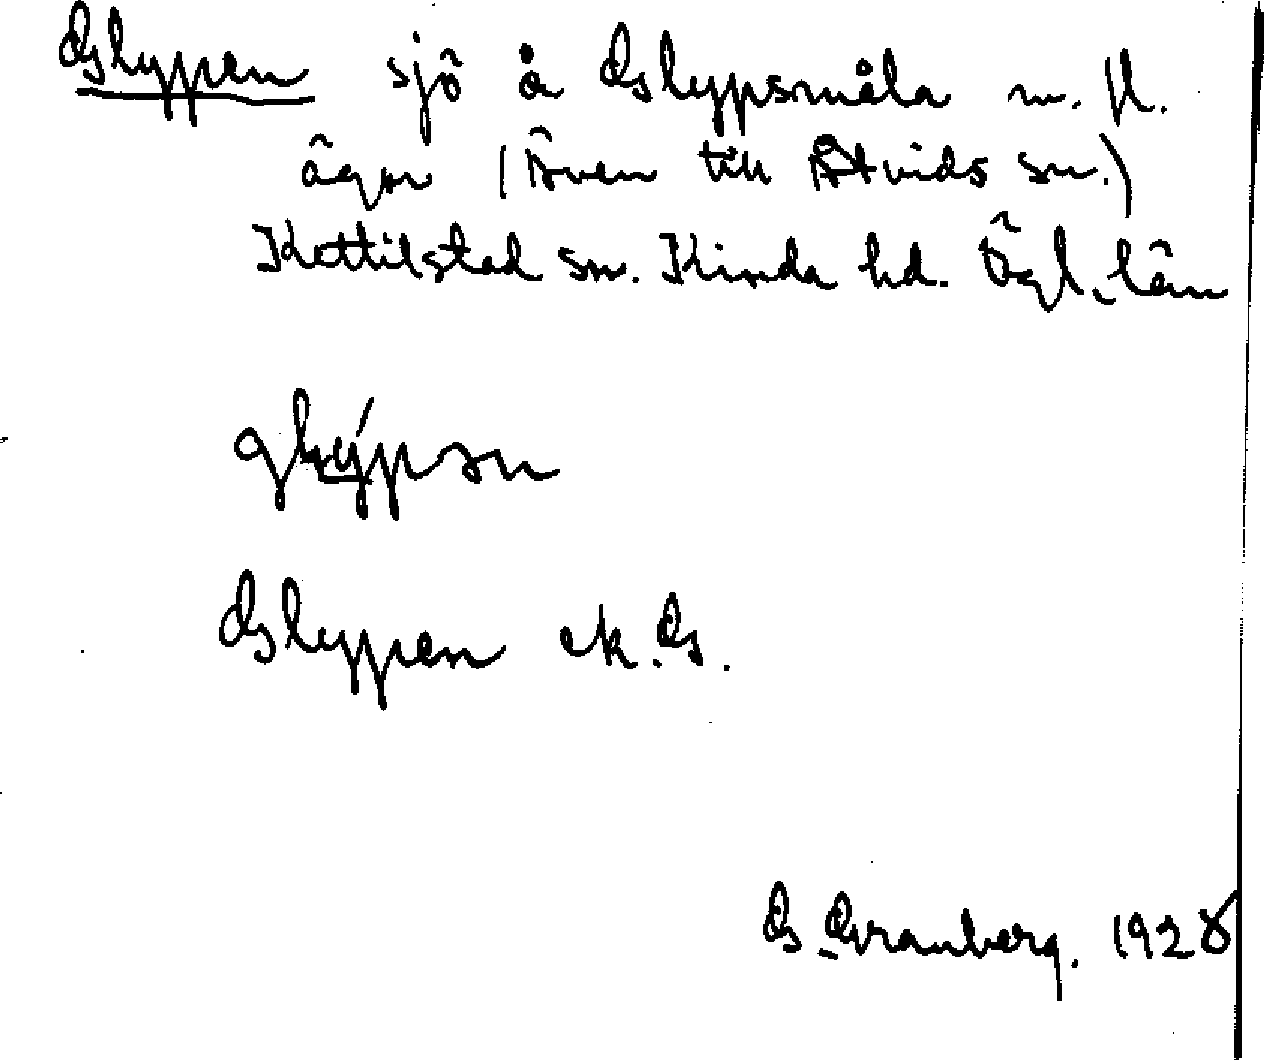 Glypen sjö å Glypsmåla m. fl.
ägor (Även till Åtvids sn.)
Kettilstad sn. Kinda hd. Ögl. län
Glypen ek.G.
G. Granberg. 1928